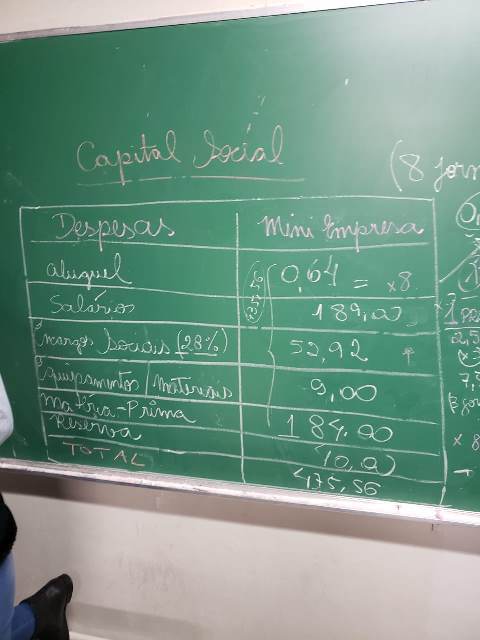 Capital Social
(8 jorn
Despesas Mini Empresa
aluguel 0,64 = x8
Salários 189,00
Encargos Sociais (28%) 52,92
Equipamentos/Materiais 9,00
Matéria-Prima 184,00
Reserva 40,00
TOTAL 475,56
x 8